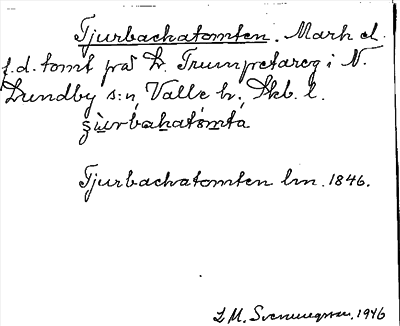 Tjurbackatomten. Mark el.
f.d. tomt på L. Trumpetareg i N.
Lundby s:n, Valle hd, Skb. l.
ʒu̲rbakatómta
Tjurbackatomten lm. 1846.
L M. Svenungsson. 1946